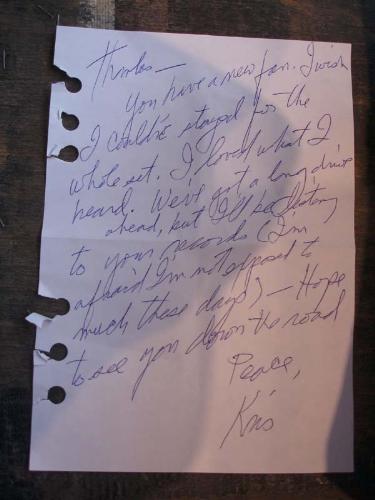 Thanks —
You have a new fan. I wish
I could've stayed for the
whole set. I loved what I
heard. We've got a long drive
ahead, but I'll be listening
to your records (I'm
afraid I'm not exposed to
much these days) — Hope
to see you down the road
Peace,
Kris